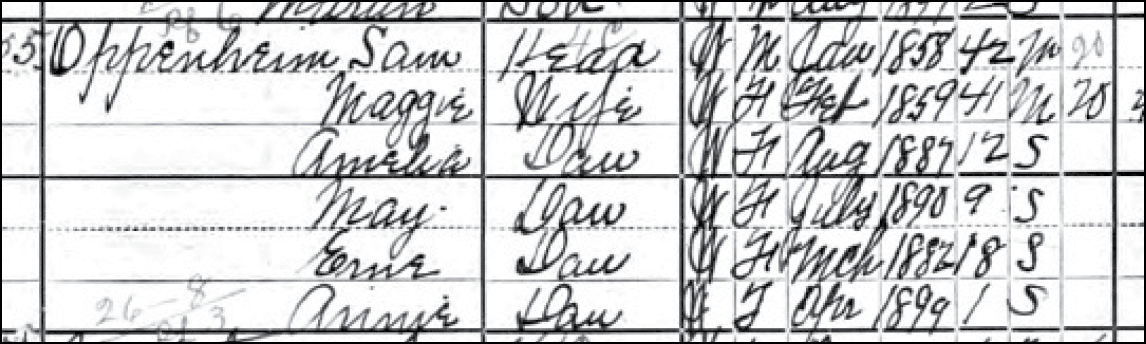 Son W S
55 Oppenheim Sam Head W M Jan 1858 42 M 20
Maggie Wife W F Feb 1859 41 M 20
Amelia Daw W F Aug 1887 12 S
May Daw W F July 1890 9 S
Erne Daw W F Mch 1882 18 S
Annie Daw W F Apr 1899 1 S
26 8/3